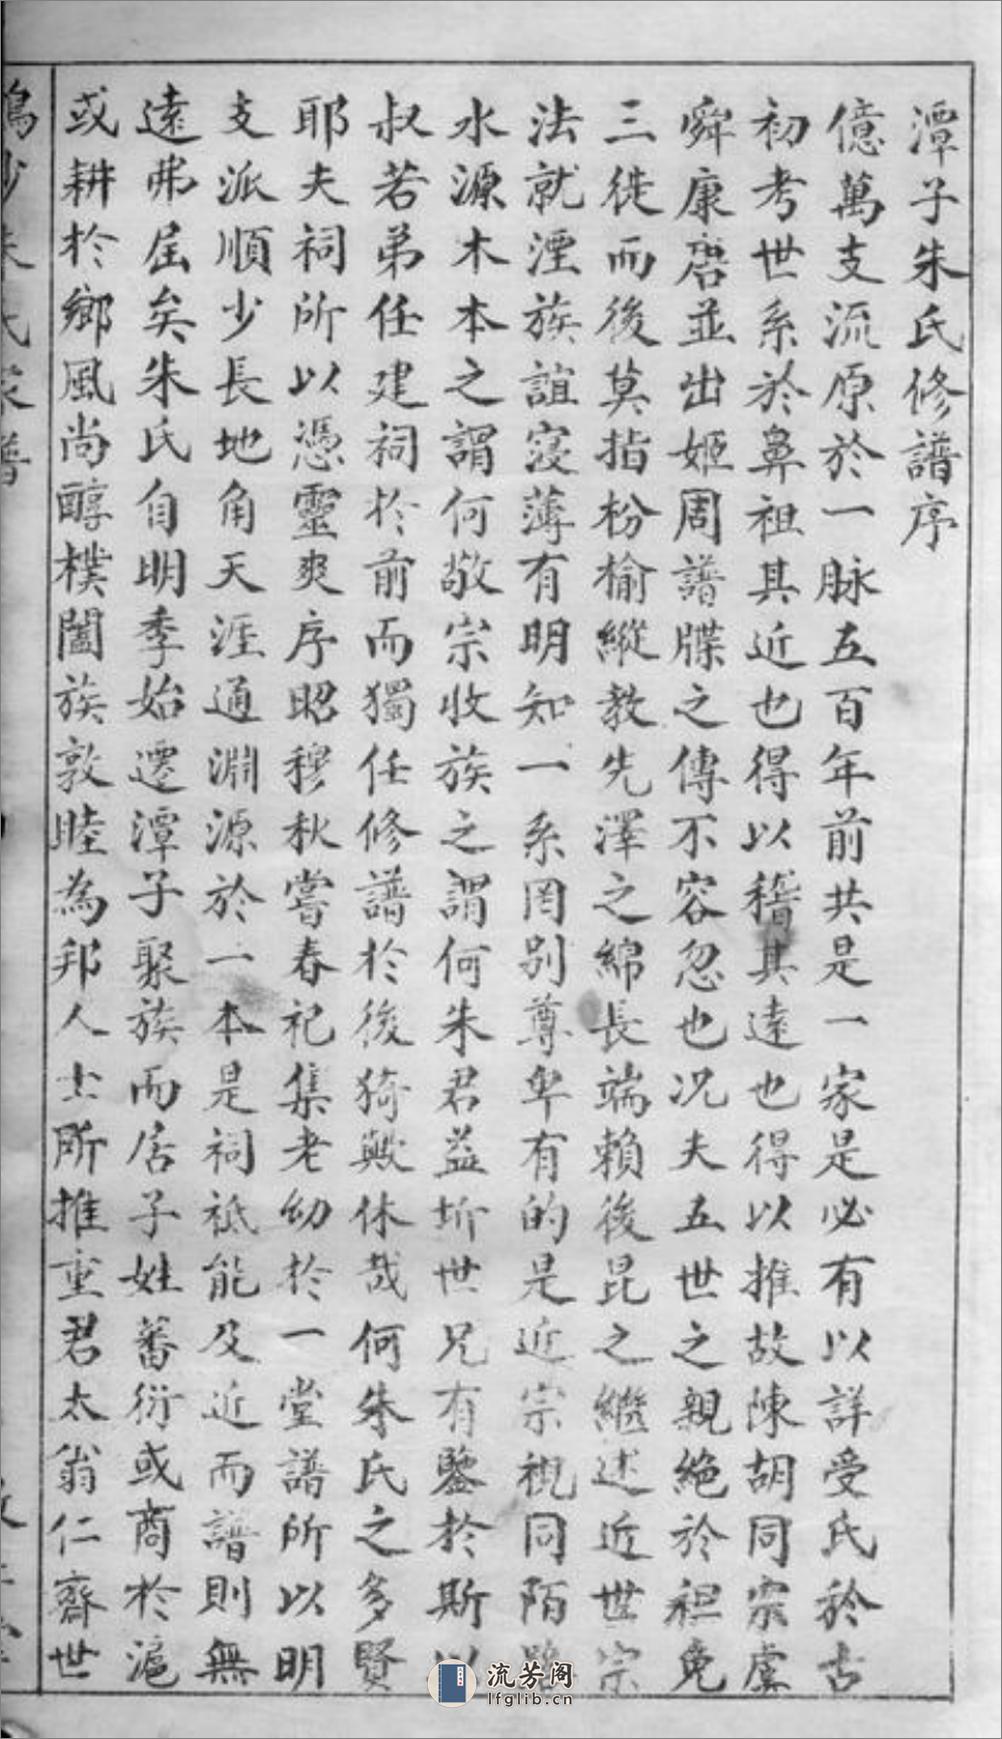 潭子朱氏修譜序
億萬支流原於一脉五百年前共是一家是必有以詳受氏於古
初考世系於鼻祖其近也得以稽其遠也得以推故陳胡同宗虞
舜康唐並出姬周譜牒之傳不容忽也况夫五世之親絶於袒免
三徙而後莫指枌榆縱教先澤之綿長端賴後昆之繼述近世宗
法就湮族誼寖薄有明知一系罔别尊卑有的是近宗視同陌路
水源木本之謂何敬宗收族之謂何朱君益圻世兄有鑒於斯以
叔若弟任建祠於前而獨任修譜於後猗歟休哉何朱氏之多賢
耶夫祠所以憑靈爽序昭穆秋嘗春祀集老幼於一堂譜所以明
支派順少長地角天涯通淵源於一本是祠祗能及近而譜則無
遠弗屆矣朱氏自明季始遷潭子聚族而居子姓蕃衍或商於滬
或耕於鄉風尚醇樸闔族敦睦為邦人士所推重君太翁仁齊世
朱氏家譜
流芳阁
lfglib.cn